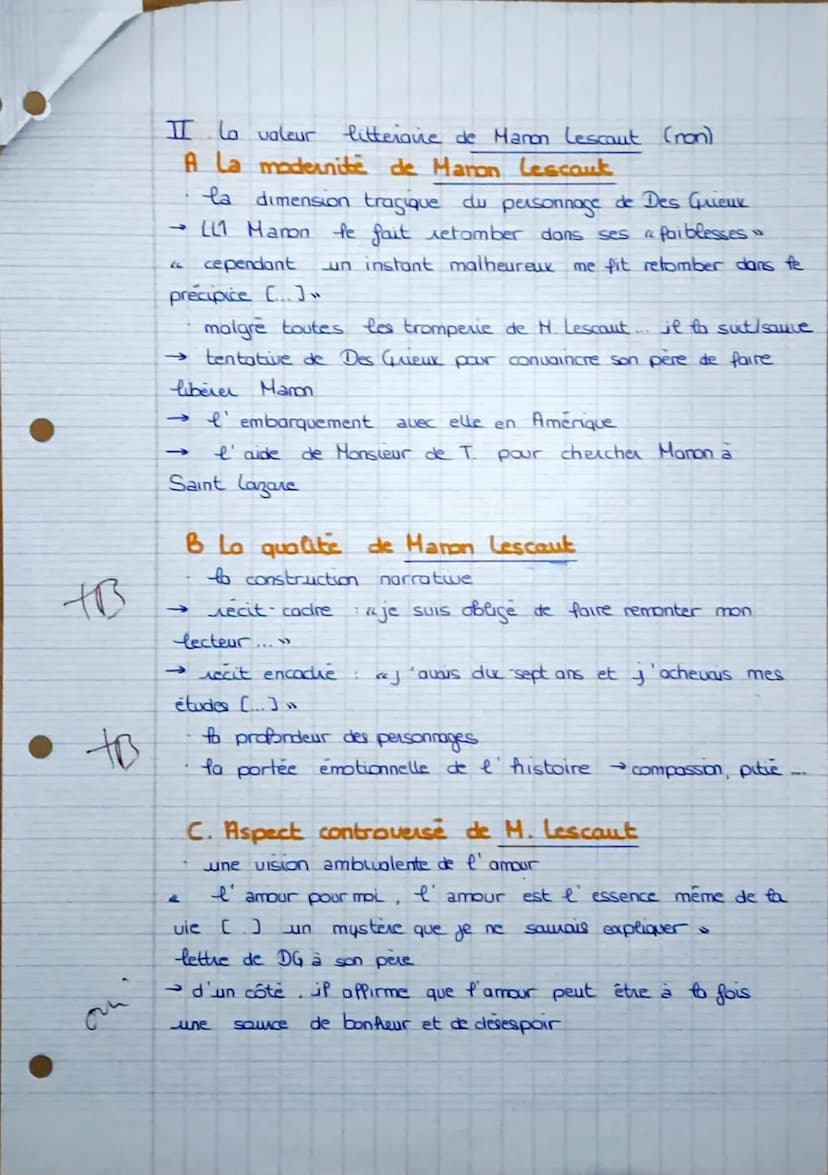 II La valeur litteraire de Manon Lescaut (non)
A La modernité de Manon Lescaut
· la dimension tragique du personnage de Des Grieux
→ LL1 Manon le fait retomber dans ses « faiblesses »
« cependant un instant malheureux me fit retomber dans le
précipice [...] »
· malgré toutes les tromperie de M. Lescaut... il la suit/sauve
→ tentative de Des Grieux pour convaincre son père de faire
libérer Manon
→ l'embarquement avec elle en Amérique
→ l'aide de Monsieur de T. pour chercher Manon à
Saint Lazare
B La qualité de Manon Lescaut
· la construction narrative
TB
→ récit-cadre : « je suis obligé de faire remonter mon
lecteur... »
→ récit encadré : « j'avais dix-sept ans et j'achevais mes
études [...] »
· la profondeur des personnages
TB
· la portée émotionnelle de l'histoire → compassion, pitié ...
C. Aspect controversé de M. Lescaut
· une vision ambivalente de l'amour
« l'amour pour moi, l'amour est l'essence même de la
vie [..] un mystère que je ne saurais expliquer »
lettre de DG à son père
→ d'un côté, il affirme que l'amour peut être à la fois
oui
une source de bonheur et de désespoir